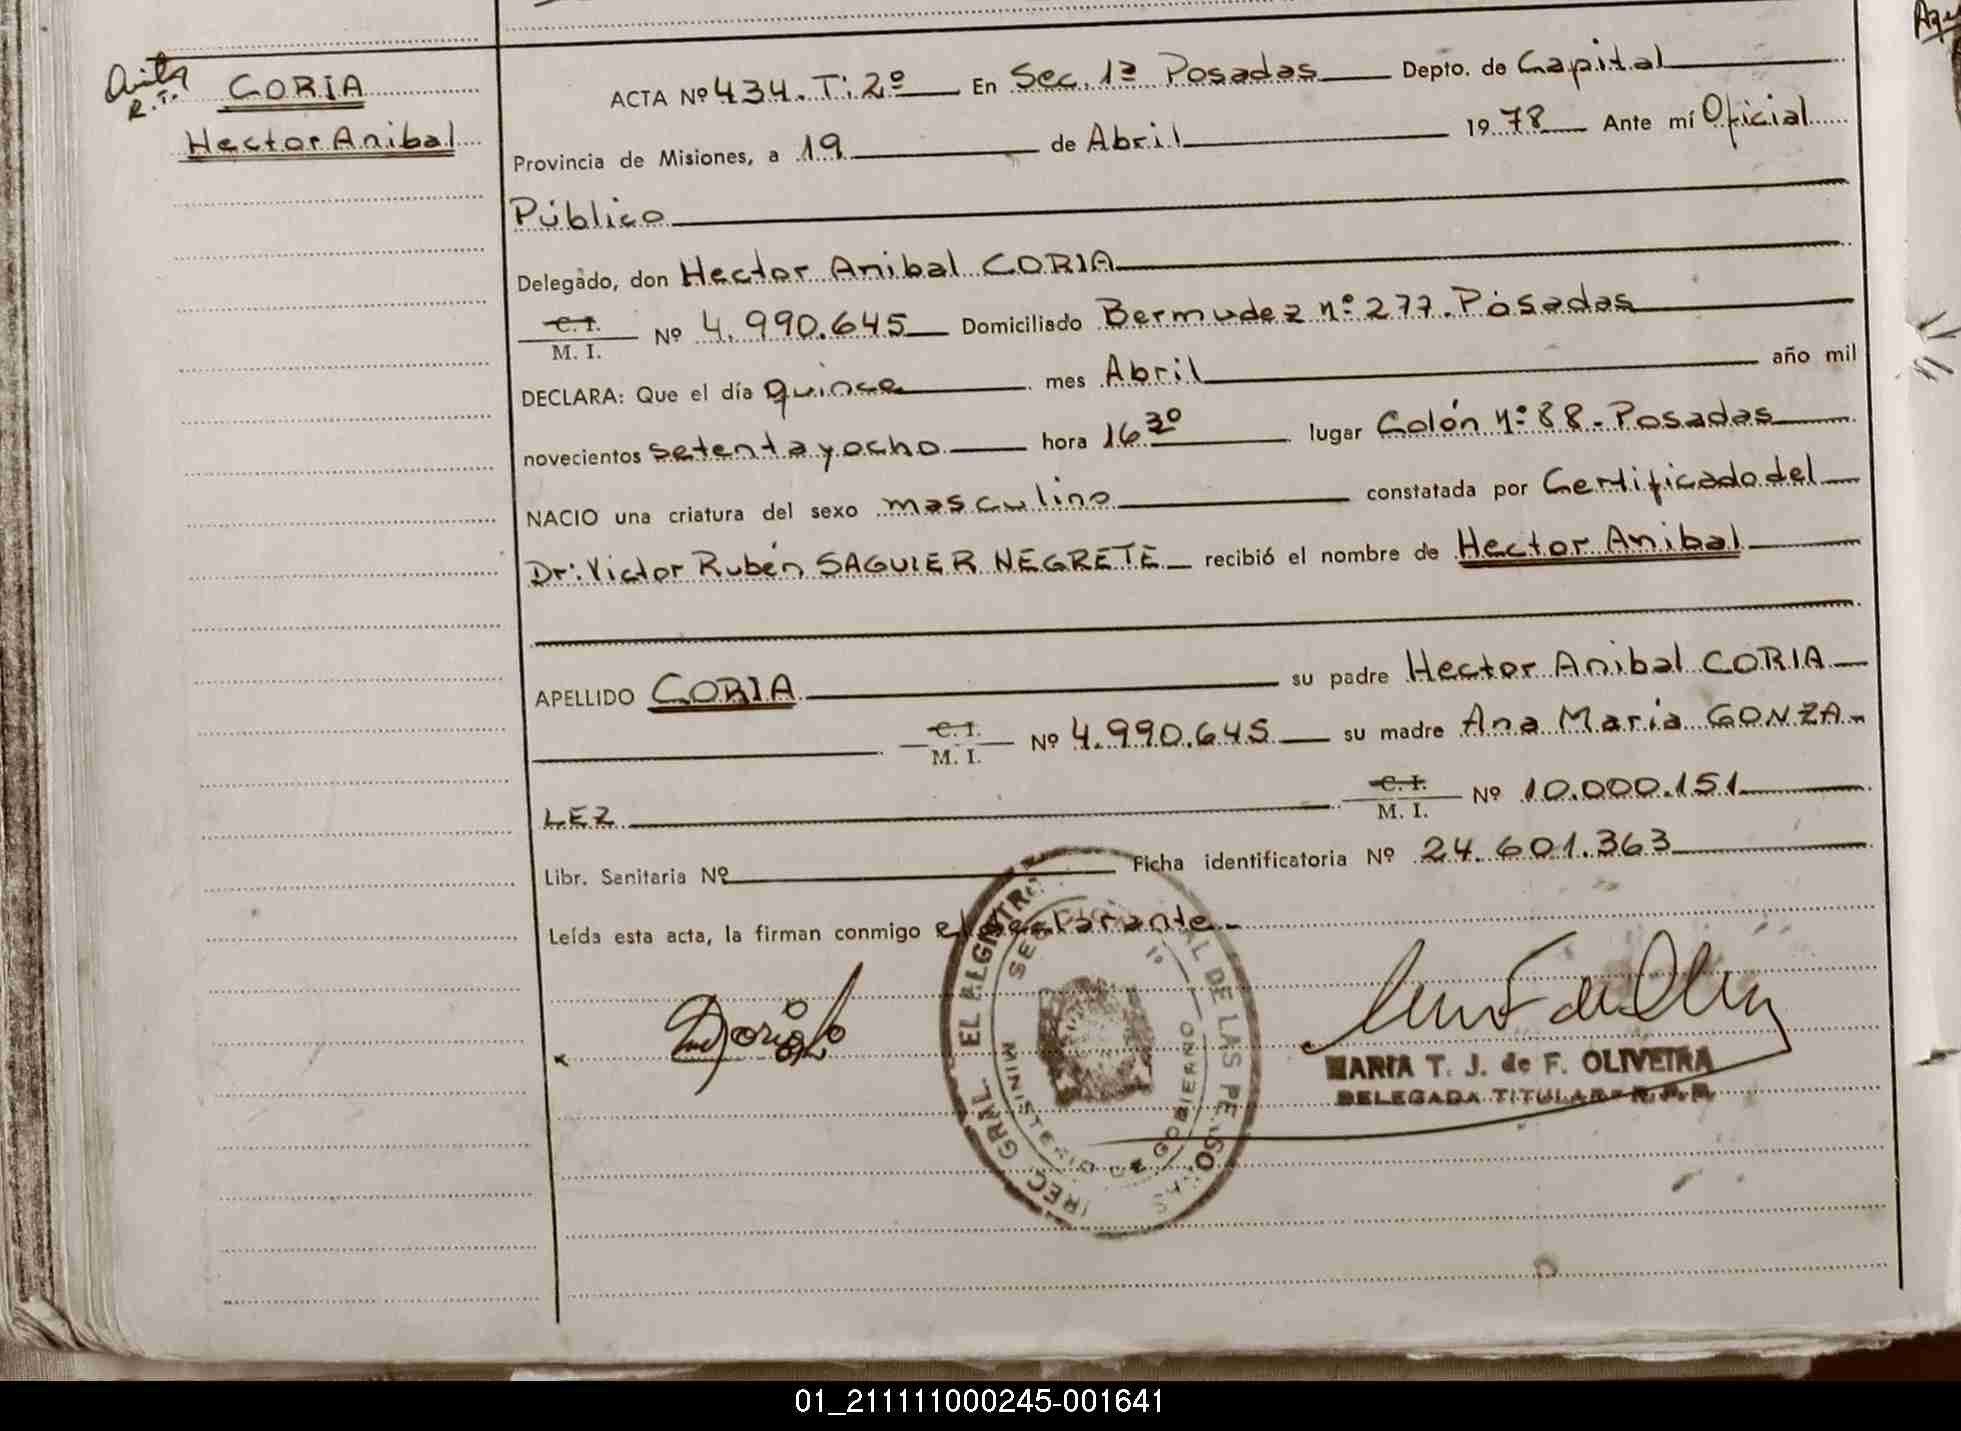 CORIA
Hector Anibal
R.T.
ACTA Nº 434. T: 2º En Sec. 1ª Posadas Depto. de Capital
Provincia de Misiones, a 19 de Abril 1978 Ante mí Oficial
Público
Delegado, don Hector Anibal CORIA
C. I.
M. I. Nº 4.990.645 Domiciliado Bermudez nº 277. Posadas
DECLARA: Que el día quince mes Abril año mil
novecientos setenta y ocho hora 16 30 lugar Colón nº 88. Posadas
NACIO una criatura del sexo masculino constatada por Certificado del
Dr: Victor Rubén SAGUIER NEGRETE recibió el nombre de Hector Anibal
APELLIDO CORIA su padre Hector Anibal CORIA
C. I.
M. I. Nº 4.990.645 su madre Ana Maria GONZA-
LEZ C. I.
M. I. Nº 10.000.151
Libr. Sanitaria Nº Ficha identificatoria Nº 24.601.363
Leída esta acta, la firman conmigo el declarante.
MARIA T. J. de F. OLIVEIRA
DELEGADA TITULAR R.P.P.
GRAL. EL REGISTRO AL DE LAS PERSONAS
MINISTERIO DE GOBIERNO
01_211111000245-001641